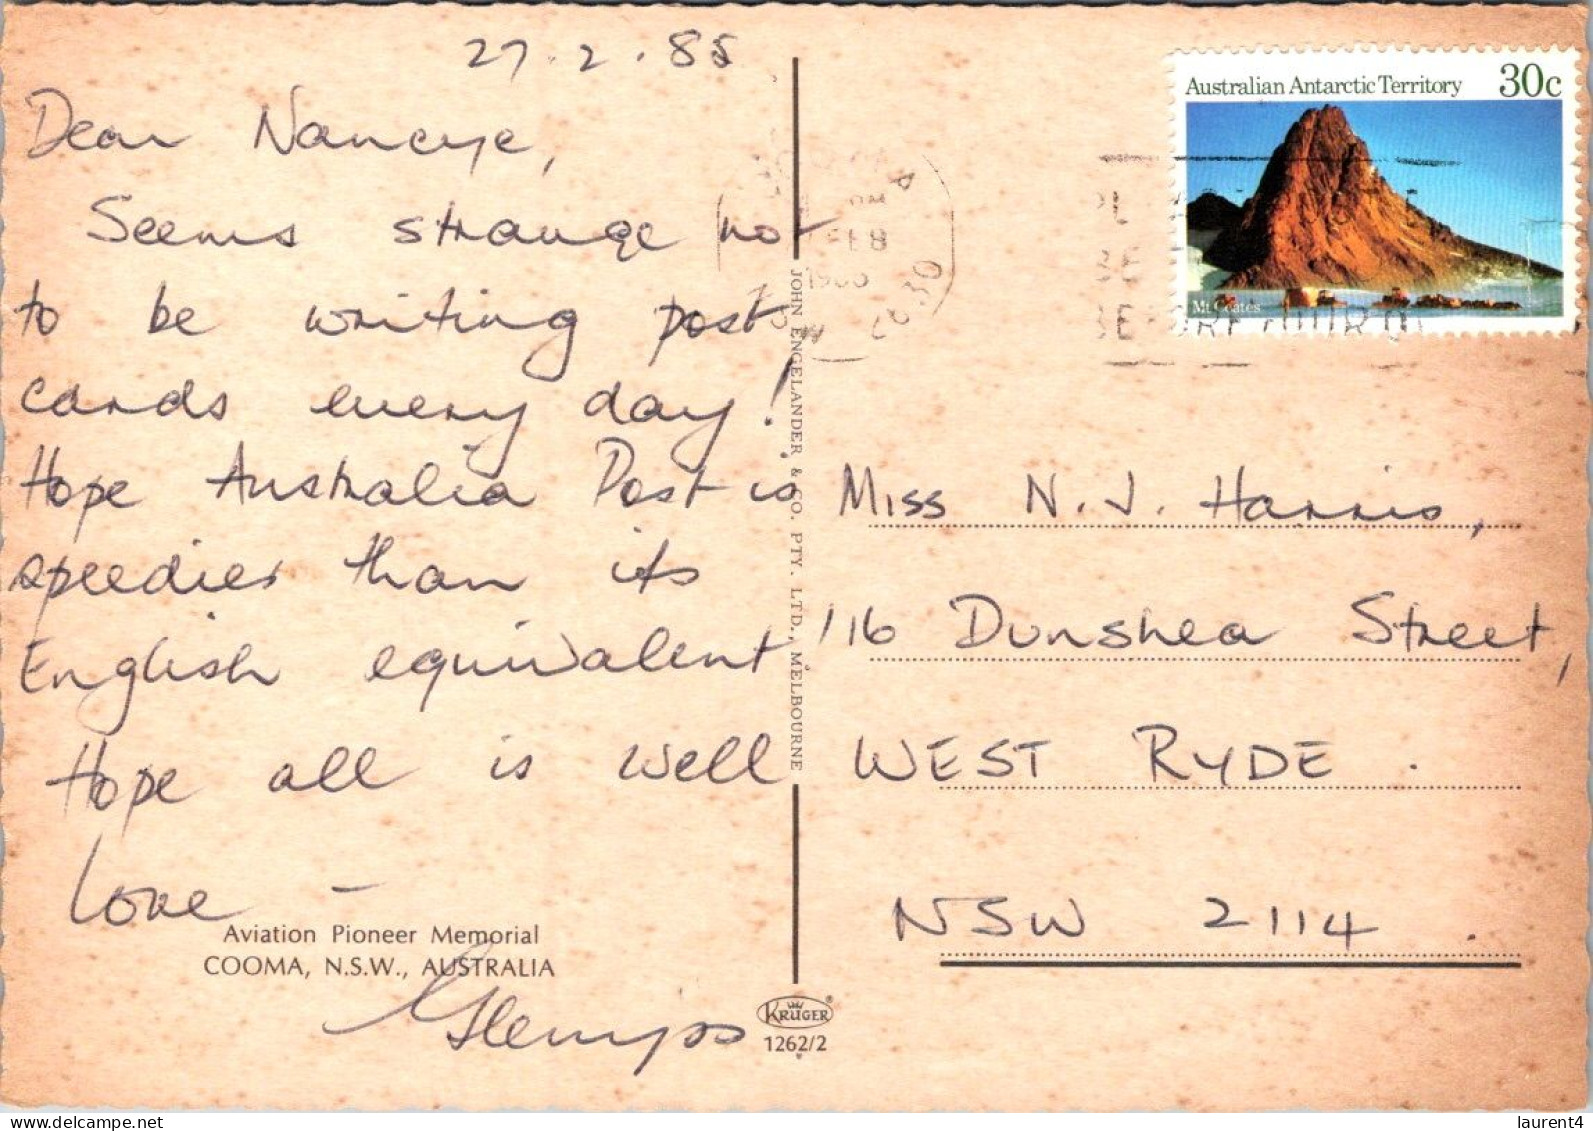 27.2.85
Dear Nancye,
Seems strange not
to be writing post
cards every day!
Hope Australia Post is
speedier than its
English equivalent
Hope all is well
Love —
Aviation Pioneer Memorial
COOMA, N.S.W., AUSTRALIA
JOHN ENGELANDER & CO. PTY. LTD., MELBOURNE
KRÜGER
1262/2
Australian Antarctic Territory 30c
Mt Coates
FEB
Miss N. J. Harris,
116 Dunshea Street,
WEST RYDE.
NSW 2114.
https://www.delcampe.net
laurent4